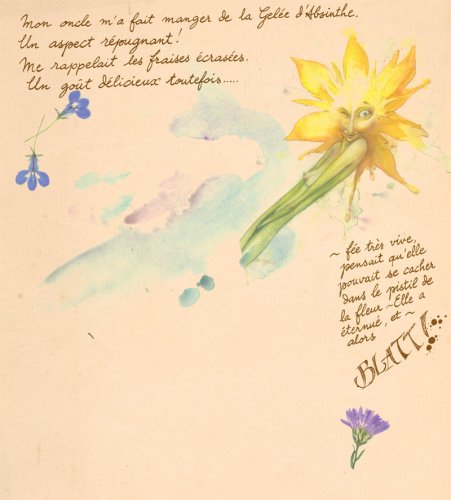 Mon oncle m'a fait manger de la Gelée d'Absinthe.
Un aspect répugnant!
Me rappelait les fraises écrasées.
Un goût délicieux toutefois.....
~ fée très vive,
pensait qu'elle
pouvait se cacher
dans le pistil de
la fleur ~ Elle a
éternué, et ~
alors
BLATT!